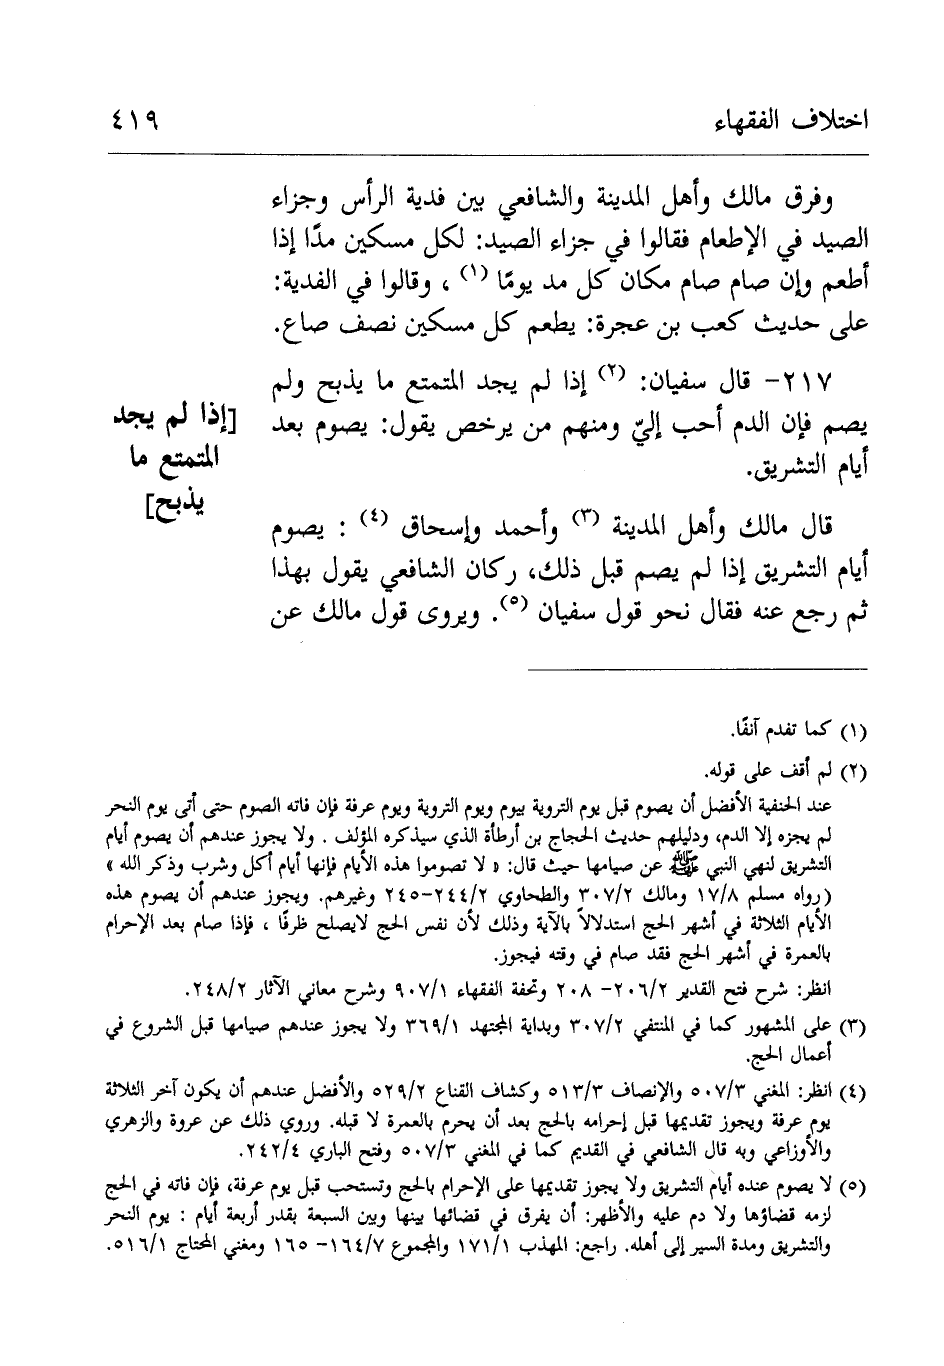 اختلاف الفقهاء ٤١٩
وفرق مالك وأهل المدينة والشافعي بين فدية الرأس وجزاء
الصيد في الإطعام فقالوا في جزاء الصيد: لكل مسكين مدًا إذا
أطعم وإن صام صام مكان كل مد يومًا (١) ، وقالوا في الفدية:
على حديث كعب بن عجرة: يطعم كل مسكين نصف صاع.
٢١٧- قال سفيان: (٢) إذا لم يجد المتمتع ما يذبح ولم
يصم فإن الدم أحب إليّ ومنهم من يرخص يقول: يصوم بعد
أيام التشريق.
[إذا لم يجد
المتمتع ما
يذبح]
قال مالك وأهل المدينة (٣) وأحمد وإسحاق (٤) : يصوم
أيام التشريق إذا لم يصم قبل ذلك، ركان الشافعي يقول بهذا
ثم رجع عنه فقال نحو قول سفيان (٥). ويروى قول مالك عن
(١) كما تفدم آنفًا.
(٢) لم أقف على قوله.
عند الحنفية الأفضل أن يصوم قبل يوم التروية بيوم ويوم التروية ويوم عرفة فإن فاته الصوم حتى أتى يوم النحر
لم يجزه إلا الدم، ودليلهم حديث الحجاج بن أرطأة الذي سيذكره المؤلف . ولا يجوز عندهم أن يصوم أيام
التشريق لنهي النبي ﷺ عن صيامها حيث قال: « لا تصوموا هذه الأيام فإنها أيام أكل وشرب وذكر الله »
(رواه مسلم ١٧/٨ ومالك ٣٠٧/٢ والطحاوي ٢٤٤/٢-٢٤٥ وغيرهم. ويجوز عندهم أن يصوم هذه
الأيام الثلاثة في أشهر الحج استدلالاً بالآية وذلك لأن نفس الحج لايصلح ظرفًا ، فإذا صام بعد الإحرام
بالعمرة في أشهر الحج فقد صام في وقته فيجوز.
انظر: شرح فتح القدير ٢٠٦/٢- ٢٠٨ وتحفة الفقهاء ٩٠٧/١ وشرح معاني الآثار ٢٤٨/٢.
(٣) على المشهور كما في المنتفي ٣٠٧/٢ وبداية المجتهد ٣٦٩/١ ولا يجوز عندهم صيامها قبل الشروع في
أعمال الحج.
(٤) انظر: المغني ٥٠٧/٣ والإنصاف ٥١٣/٣ وكشاف القناع ٥٢٩/٢ والأفضل عندهم أن يكون آخر الثلاثة
يوم عرفة ويجوز تقديمها قبل إحرامه بالحج بعد أن يحرم بالعمرة لا قبله. وروي ذلك عن عروة والزهري
والأوزاعي وبه قال الشافعي في القديم كما في المغني ٥٠٧/٣ وفتح الباري ٢٤٢/٤.
(٥) لا يصوم عنده أيام التشريق ولا يجوز تقديمها على الإحرام بالحج وتستحب قبل يوم عرفة، فإن فاته في الحج
لزمه قضاؤها ولا دم عليه والأظهر: أن يفرق في قضائها بينها وبين السبعة بقدر أربعة أيام : يوم النحر
والتشريق ومدة السير إلى أهله. راجع: المهذب ١٧١/١ والمجموع ١٦٤/٧- ١٦٥ ومغني المحتاج ٥١٦/١.